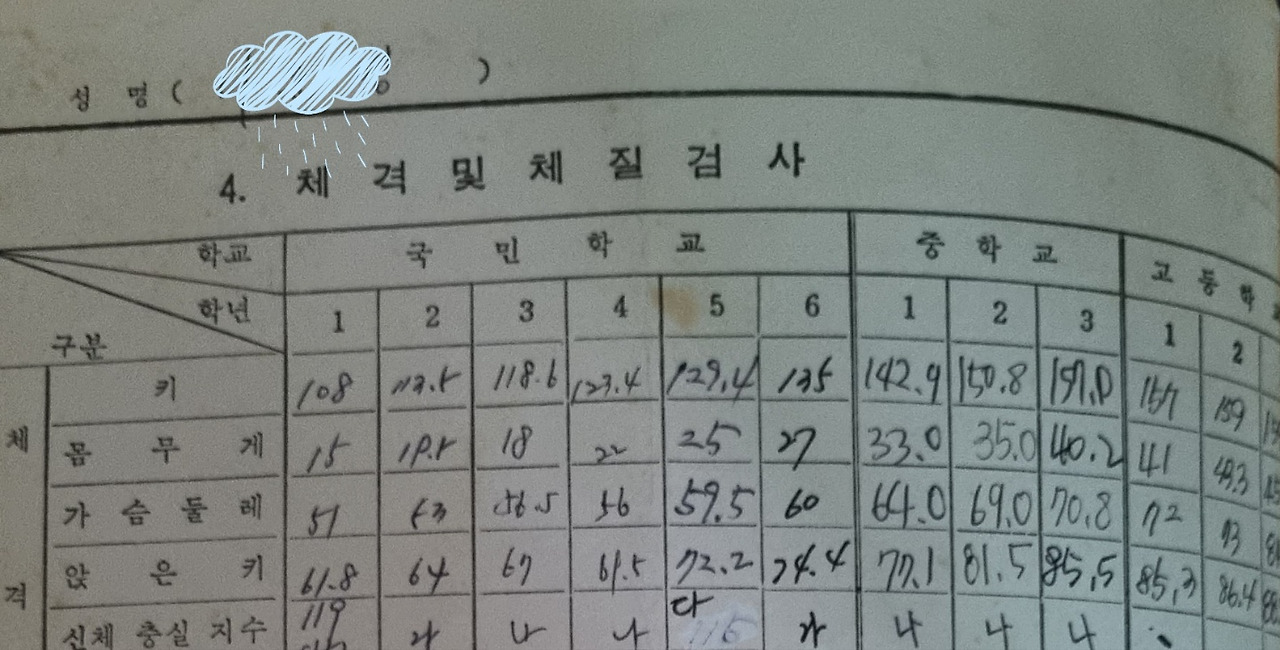 성 명 ( )
4. 체 격 및 체 질 검 사
학교 국 민 학 교 중 학 교 고 등 학
학년 1 2 3 4 5 6 1 2 3 1 2
구분
체 격
키 108 113.5 118.6 123.4 129.4 135 142.9 150.8 157.0 157 159
몸 무 게 15 18 22 25 27 33.0 35.0 40.2 41 49.3
가 슴 둘 레 51 53 56.5 56 59.5 60 64.0 69.0 70.8 72 73
앉 은 키 61.8 64 67 61.5 72.2 74.4 77.1 81.5 85.5 85.3 86.4
신체 충실 지수 119 가 나 나 다 115 가 나 나 나